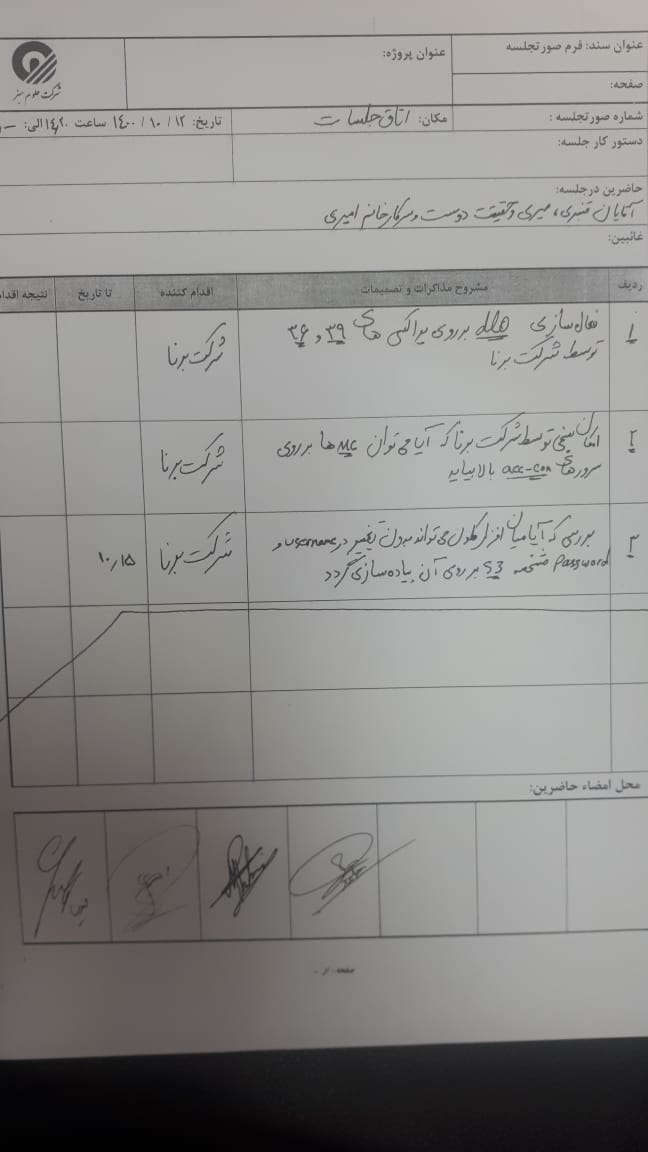 عنوان سند: فرم صورتجلسه
عنوان پروژه:
شرکت علوم سبز
صفحه:
شماره صورتجلسه :
مکان: اتاق جلسات
تاریخ: ۱۲ / ۱۰ / ۱۴۰۰ ساعت ۱۴٫۲۰ الی:
دستور کار جلسه:
حاضرین درجلسه:
آقایان قنبری، میری و حقیقت دوست و سرکار خانم امیری
غائبین:
ردیف مشروح مذاکرات و تصمیمات اقدام کننده تا تاریخ نتیجه اقدا
۱ فعال سازی برروی پراکسی های ۳۹ و ۳۶ شرکت برنا
توسط شرکت برنا
۲ امکان سنجی توسط شرکت برنا که آیا می توان ها برروی شرکت برنا
سرورهای acc-con بالا بیاید
۳ بررسی که آیا میان افزار کلون می تواند بدون تغییر در username و شرکت برنا ۱۰٫۱۵
password نسخه S3 بر روی آن پیاده سازی گردد
محل امضاء حاضرین:
صفحه ۰ از ۰